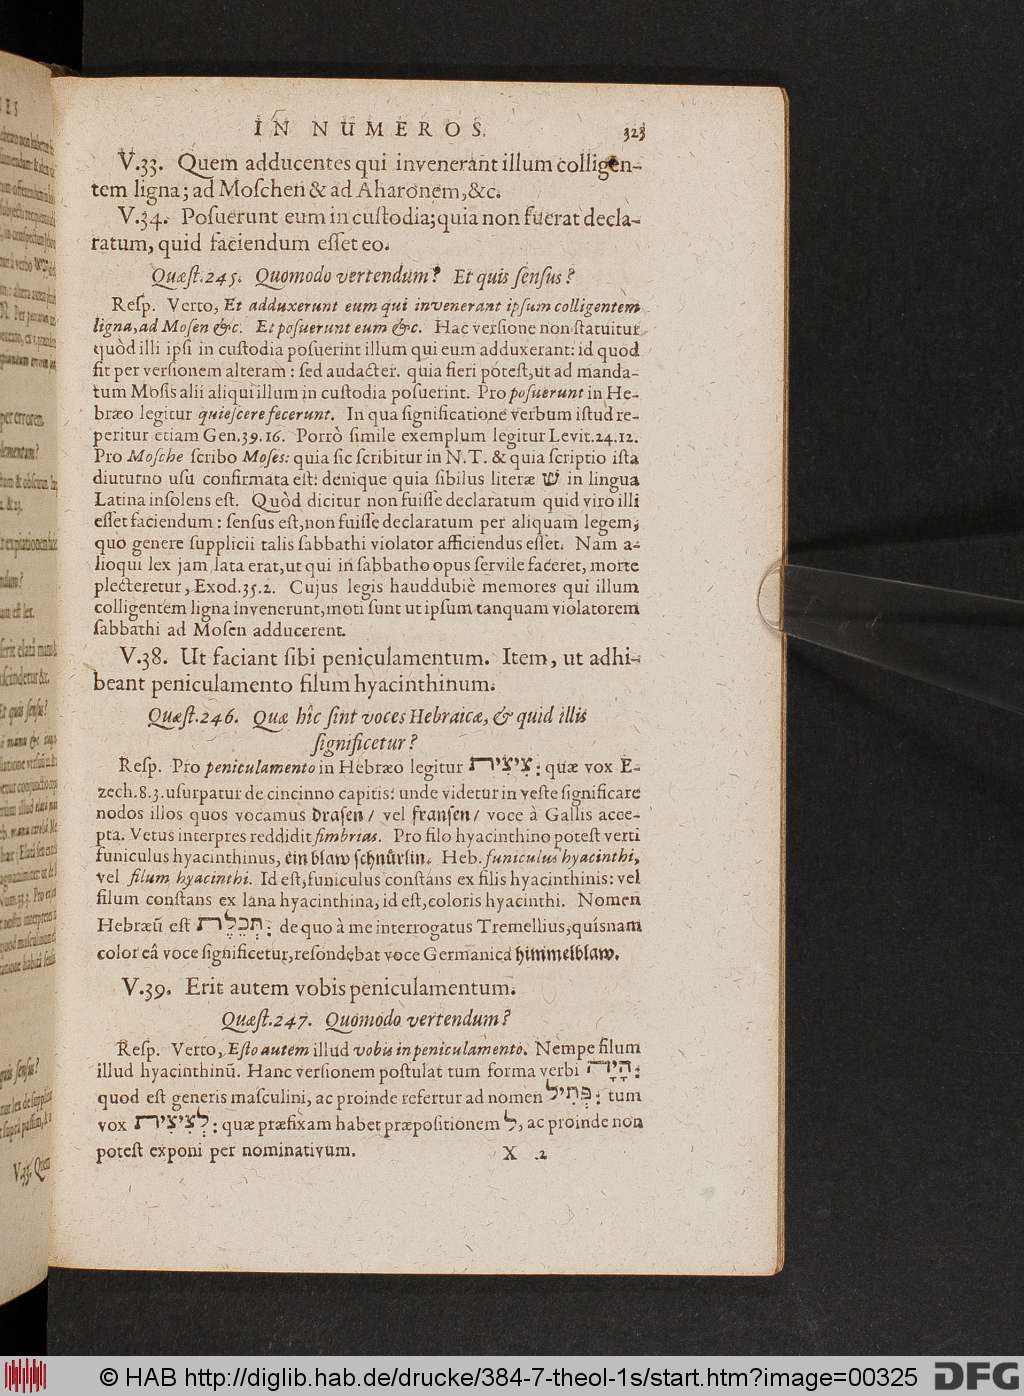 IN NUMEROS. 323
V.33. Quem adducentes qui invenerant illum colligen-
tem ligna; ad Moſchen & ad Aharonem, &c.
V.34. Poſuerunt eum in cuſtodia; quia non fuerat decla-
ratum, quid faciendum eſſet eo.
Quæſt.245. Quomodo vertendum? Et quis ſenſus?
Reſp. Verto, Et adduxerunt eum qui invenerant ipſum colligentem
ligna, ad Moſen &c. Et poſuerunt eum &c. Hac verſione non ſtatuitur
quòd illi ipſi in cuſtodia poſuerint illum qui eum adduxerant: id quod
fit per verſionem alteram: ſed audacter. quia fieri poteſt, ut ad manda-
tum Moſis alii aliqui illum in cuſtodia poſuerint. Pro poſuerunt in He-
bræo legitur quieſcere fecerunt. In qua ſignificatione verbum iſtud re-
peritur etiam Gen.39.16. Porrò ſimile exemplum legitur Levit.24.12.
Pro Moſche ſcribo Moſes: quia ſic ſcribitur in N.T. & quia ſcriptio iſta
diuturno uſu confirmata eſt: denique quia ſibilus literæ שׁ in lingua
Latina inſolens eſt. Quòd dicitur non fuiſſe declaratum quid viro illi
eſſet faciendum: ſenſus eſt, non fuiſſe declaratum per aliquam legem,
quo genere ſupplicii talis ſabbathi violator afficiendus eſſet. Nam a-
lioqui lex jam lata erat, ut qui in ſabbatho opus ſervile faceret, morte
plecteretur, Exod.35.2. Cujus legis hauddubiè memores qui illum
colligentem ligna invenerunt, moti ſunt ut ipſum tanquam violatorem
ſabbathi ad Moſen adducerent.
V.38. Ut faciant ſibi peniculamentum. Item, ut adhi-
beant peniculamento filum hyacinthinum.
Quæſt.246. Quæ hîc ſint voces Hebraicæ, & quid illis
ſignificetur?
Reſp. Pro peniculamento in Hebræo legitur צִיצִית: quæ vox E-
zech.8.3. uſurpatur de cincinno capitis: unde videtur in veſte ſignificare
nodos illos quos vocamus draſen / vel franſen / voce à Gallis acce-
pta. Vetus interpres reddidit fimbrias. Pro filo hyacinthino poteſt verti
funiculus hyacinthinus, ein blaw ſchnůrlin. Heb. funiculus hyacinthi,
vel filum hyacinthi. Id eſt, funiculus conſtans ex filis hyacinthinis: vel
filum conſtans ex lana hyacinthina, id eſt, coloris hyacinthi. Nomen
Hebræū eſt תְּכֵלֶת: de quo à me interrogatus Tremellius, quiſnam
color eâ voce ſignificetur, reſondebat voce Germanica himmelblaw.
V.39. Erit autem vobis peniculamentum.
Quæſt.247. Quomodo vertendum?
Reſp. Verto, Eſto autem illud vobis in peniculamento. Nempe filum
illud hyacinthinū. Hanc verſionem poſtulat tum forma verbi הָיָה:
quod eſt generis maſculini, ac proinde refertur ad nomen פְּתִיל: tum
vox לְצִיצִית: quæ præfixam habet præpoſitionem ל, ac proinde non
poteſt exponi per nominativum. X 2
© HAB http://diglib.hab.de/drucke/384-7-theol-1s/start.htm?image=00325 DFG